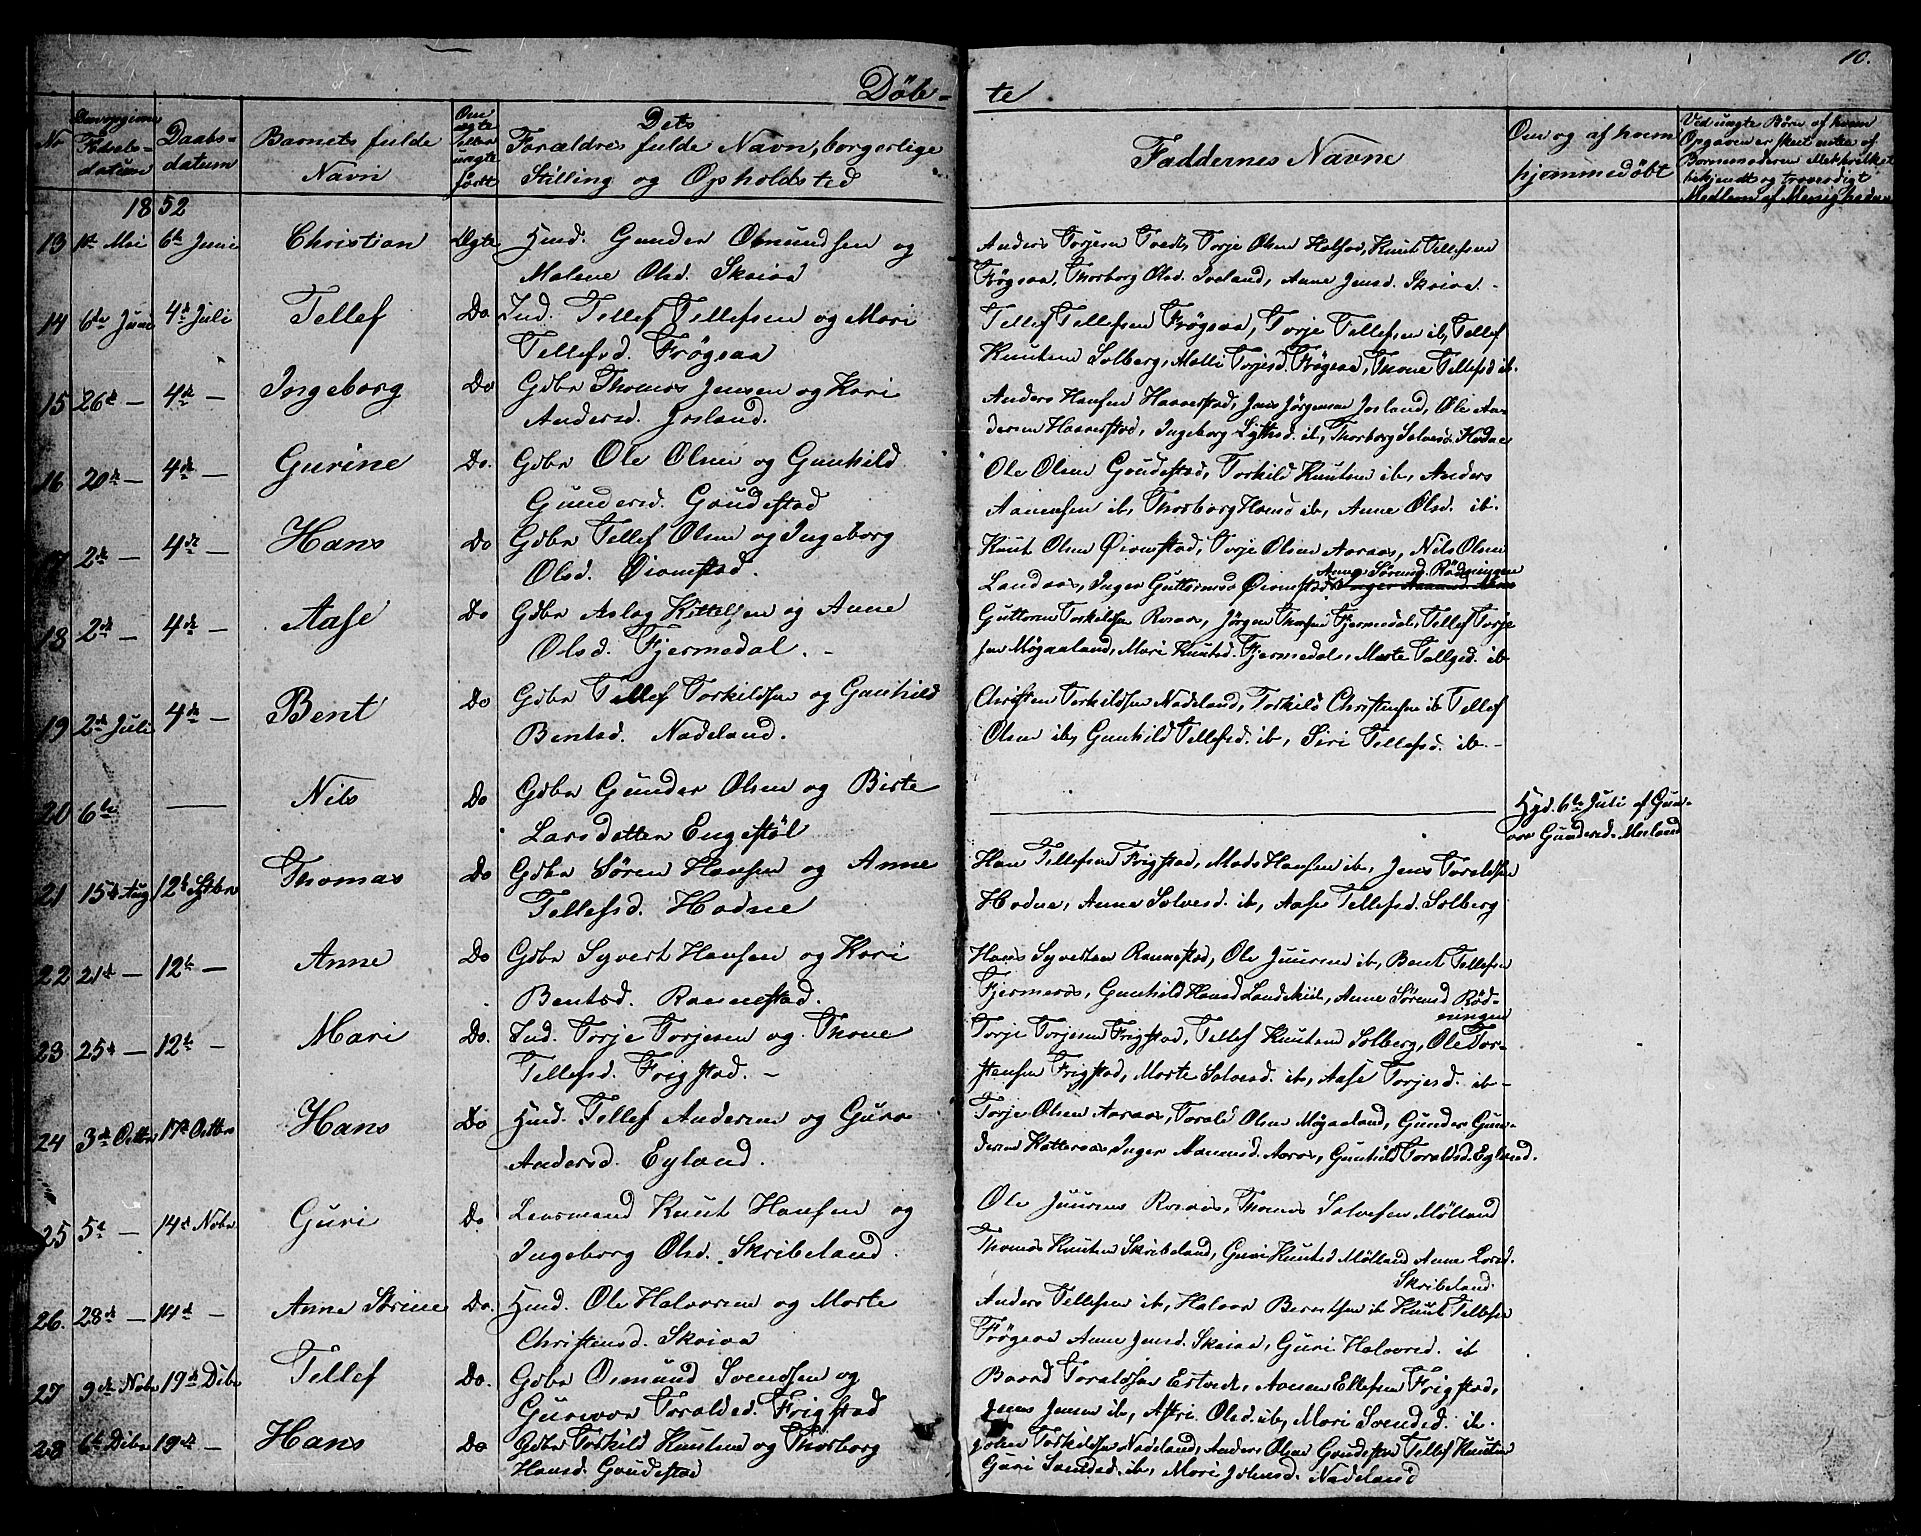 10.
Døb- te
No
Fødsels-
datum
Daabs-
datum
Barnets fulde
Navn
Om
ægte
eller
uægte
født
Dets
Forældres fulde Navn, borgerlige
Stilling og Opholdsted
Faddernes Navne
Om og af hvem
hjemmedøbt
Ved uægte Børn af hvem
Opgaven er skeet enten af
Barnemoderen eller hvilket
bekjendt og troværdigt
Medlem af Menigheden
1852
13 1st Mai 6te Juni Christian Ægte Huusd. Gunder Osmundsen og
Malene Olsd. Skaiaa
Anders Torjesen Tveit, Torje Olsen Hodne, Knut Tellefsen
Frøgsaa, Thorborg Olsd. Iveland, Anne Jensd. Skaiaa.
14 6te Juni 4de Juli Tellef Do Ind. Tellef Tellefsen og Mari
Tellefsd. Frøgsaa
Tellef Tellefsen Frøgsaa, Torje Tellefsen ib, Tellef
Knutsen Solberg, Malli Torjesd. Frøgsaa, Thone Tellefsd ib.
15 26de — 4de — Ingeborg Do Gdbr Thomas Jensen og Kari
Andersd. Josland.
Anders Hansen Haverstad, Jens Jørgensen Josland, Ole An-
dersen Haverstad, Ingeborg ib, Thorborg Salvesd. Hodne
16 20de — 4de — Gurine Do. Gdbr Ole Olsen og Gunhild
Gundersd. Goudestad
Ole Olsen Goudestad, Torkild Knutsen ib, Anders
Aanensen ib, Thorborg Hansd ib, Anne Olsd. ib.
17 2de — 4de — Hans Do Gdbr Tellef Olsen og Ingeborg
Olsd. Øiomstad.
Knut Olsen Øiomstad, Torje Olsen Aaraas, Nils Olsen
Anne Sørensd. Rødningen
Landaas, Inger Guttormsd Øiomstad,
18 2de — 4de — Aase Do Gdbr Aslag Kittelsen og Anne
Olsd. Fjermedal. -
Guttorm Torkildsen Rosaas, Jørgen Fjermedal, Tellef Torje
sen Møgaaland, Mari Knutsd. Fjermedal, Marte Tallgsd. ib
19 2de Juli 4de — Bent Do Gdbr Tellef Torkildsen og Gunhild
Bentsd. Nadeland.
Christen Torkildsen Nadeland, Torkild Christensen ib Tellef
Olsen ib, Gunhild Tellefsd. ib, Siri Tellefsd. ib. -
20 6te —— Nils Do Gdbr Gunder Olsen og Birte
Larsdatter Engestøl
Hjd. 6te Juli af Gun-
vor Gundersd. Mæland
21 15de Aug 12te Septbr Thomas Do Gdbr Søren Hansen og Anne
Tellefsd. Hodne
Han Tellefsen Frigstad, Mads Hansen ib, Jens Toraldsen
Hodne, Anne Salvesd. ib, Aase Tellefsd. Solberg
22 21de — 12te — Anne Do Gdbr Syvert Hansen og Kari
Bentsd. Rannestad.
Hans Syvertsen Rannestad, Ole Juursen ib, Bent Tellefsen
Fjermeros, Gunhild Hansd Landskiil, Anne Sørensd Rød-
ningen
23 25de — 12te — Mari Do. Ind. Torje Torjesen og Thone
Tellefsd. Frigstad. -
Torje Torjesen Frigstad, Tellef Knutsen Solberg, Ole Tor-
stensen Frigstad, Marte Salvesd. ib, Aase Torjesd. ib -
24 3de Octbr 17de Octbr Hans Do Huusd. Tellef Andersen og Guro
Andersd. Eyland.
Torje Olsen Aaraas, Torald Olsen Møgaaland, Gunder Gun-
dersen Katteraas, Inger Aanensd. Aaraas, Gunhild Toraldsd. Eyland.
25 5te — 14de Novbr Guri Do Lensmand Knut Hansen og
Ingeborg Olsd. Skribeland.
Ole Juursens Rosaas, Thomas Salvesen Mølland
Thomas Knutsen Skribeland, Guri Knutsd Mølland Anne Larsd.
Skribeland.
26. 28de — 14de — Anne Sørine Do. Huusd. Ole Halvorsen og Marte
Christensd. Skaiaa
Anders Tellefsen ib, Halvor Berntsen ib Knut Tellefsen
Frøgsaa Anne Jensd. Skaiaa, Guri Halvorsd. ib
27 9de Novbr 19de Dcbr Tellef Do. Gdbr Osmund Svendsen og
Gunvor Toraldsd. Frigstad
Baard Toraldsen Estvedt, Aanen Ellefsen Frigstad,
Jens Jensen ib, Astri Olsd. ib, Mari Svendsd. ib.
28 6te Dcbr 19de — Hans Do Gdbr Torkild Knutsen og Thorborg
Hansd. Goudestad
John Torkildsen Nadeland, Anders Olsen Goudestad Tellef Knutsen
Guri Svendsd. ib, Mari Johnsd. Nadeland